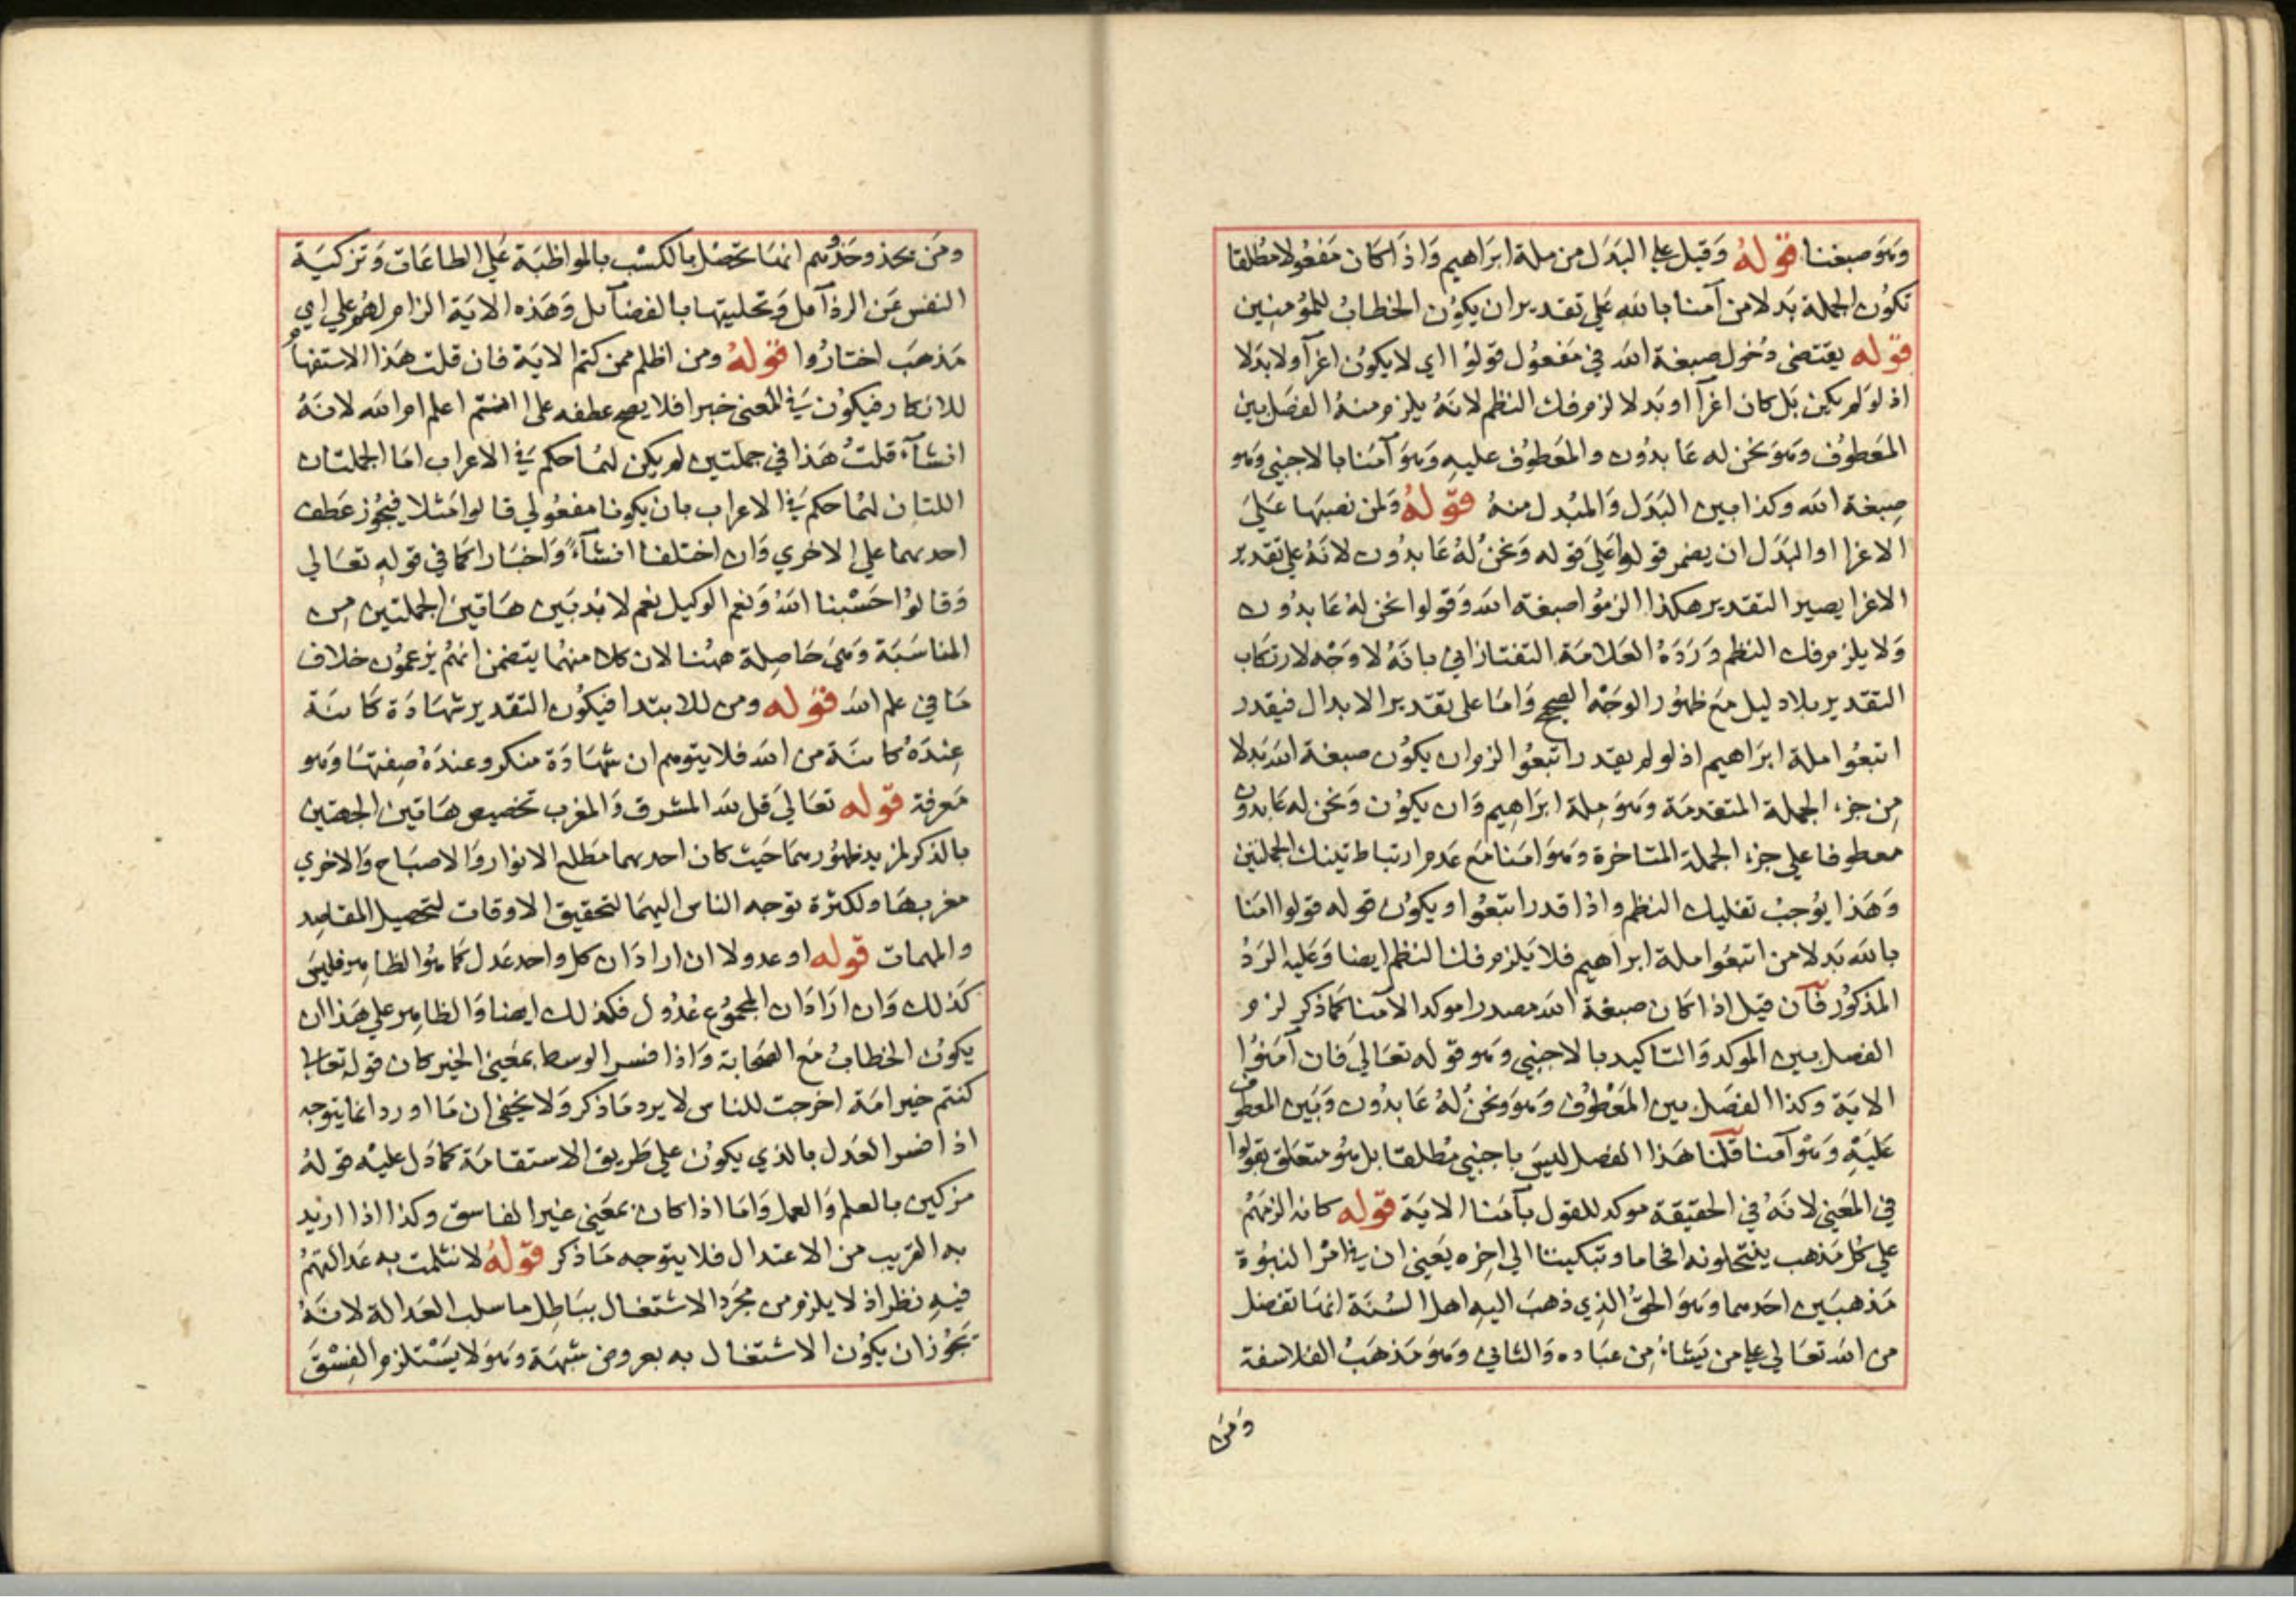 وهو صبغنا قوله وقيل على البدل من ملة ابراهيم واذا كان مفعولا مطلقا
تكون الجملة بدلا من آمنا بالله على تقدير ان يكون الخطاب للمؤمنين
قوله يقتضى دخول صبغة الله في مفعول قولوا اي لا يكون اغرآ ولا بدلا
اذ لو لم يكن بل كان اغرآ او بدلا لزم فك النظم لانه يلزم منه الفصل بين
المعطوف وهو نحن له عابدون والمعطوف عليه وهو آمنا بالاجنبي وهو
صبغة الله وكذا بين البدل والمبدل منه قوله ولمن نصبها على
الاغرا او البدل ان يضمر قولوا على قوله ونحن له عابدون لانه على تقدير
الاغرا يصير التقدير هكذا الزموا صبغة الله وقولوا نحن له عابدون
ولا يلزم فك النظم ورده العلامة التفتازاني بانه لا وجه لارتكاب
التقدير بلا دليل مع ظهور الوجه الصحيح واما على تقدير الابدال فيقدر
اتبعوا ملة ابراهيم اذ لو لم يقدر اتبعوا لزم ان يكون صبغة الله بدلا
من جزء الجملة المتقدمة وهو ملة ابراهيم وان يكون ونحن له عابدون
معطوفا على جزء الجملة المتاخرة وهو امنا مع عدم ارتباط تينك الجملتين
وهذا يوجب تفكيك النظم واذا قدر اتبعوا ويكون قوله قولوا امنا
بالله بدلا من اتبعوا ملة ابراهيم فلا يلزم فك النظم ايضا وعليه الرد
المذكور فان قيل اذا كان صبغة الله مصدرا موكدا لامنا كما ذكر لزم
الفصل بين الموكد والتاكيد بالاجنبي وهو قوله تعالى فان آمنوا
الاية وكذا الفصل بين المعطوف وهو ونحن له عابدون وبين المعطوف
عليه وهو آمنا قلنا هذا الفصل ليس باجنبي مطلقا بل هو متعلق بقولوا
في المعنى لانه في الحقيقة موكد للقول بآمنا الاية قوله كانه الزمهم
على كل مذهب ينتحلونه افحاما وتبكيتا الى اخره يعنى ان في امر النبوة
مذهبين احدهما وهو الحق الذي ذهب اليه اهل السنة انها تفضل
من الله تعالى على من يشاء من عباده والثاني وهو مذهب الفلاسفة
ومن
ومن يحذو حذوهم انها تحصل بالكسب بالمواظبة على الطاعات وتزكية
النفس عن الرذآئل وتحليتها بالفضآئل وهذه الاية الزام لهم على اي
مذهب اختاروا قوله ومن اظلم ممن كتم الاية فان قلت هذا الاستفهام
للانكار فيكون في المعنى خبرا فلا يصح عطفه على اانتم اعلم ام الله لانه
انشآء قلت هذا في جملتين لم يكن لهما حكم في الاعراب اما الجملتان
اللتان لهما حكم في الاعراب بان يكونا مفعولي قالوا مثلا فيجوز عطف
احديهما على الاخري وان اختلفا انشآء واخبارا كما في قوله تعالي
وقالوا حسبنا الله ونعم الوكيل نعم لا بد بين هاتين الجملتين من
المناسبة وهي حاصلة ههنا لان كلا منهما يتضمن انهم يزعمون خلاف
ما في علم الله قوله ومن للابتدا فيكون التقدير شهادة كائنة
عنده كائنة من الله فلا يتوهم ان شهادة منكر وعنده صفتها وهو
معرفة قوله تعالى قل لله المشرق والمغرب تخصيص هاتين الجهتين
بالذكر لمزيد ظهورهما حيث كان احديهما مطلع الانوار والاصباح والاخري
مغربها ولكثرة توجه الناس اليهما لتحقيق الاوقات لتحصيل المقاصد
والمهمات قوله او عدولا ان اراد ان كل واحد عدل كما هو الظاهر فليس
كذلك وان اراد ان المجموع عدول فكذلك ايضا والظاهر على هذا ان
يكون الخطاب مع الصحابة واذا فسر الوسط بمعنى الخير كان قوله تعالى
كنتم خير امة اخرجت للناس لا يرد ما ذكر ولا يخفى ان ما اورد انما يتوجه
اذا فسر العدل بالذي يكون على طريق الاستقامة كما دل عليه قوله
مزكين بالعلم والعمل واما اذا كان بمعنى غير الفاسق وكذا اذا اريد
به القريب من الاعتدال فلا يتوجه ما ذكر قوله لانثلمت به عدالتهم
فيه نظر اذ لا يلزم من مجرد الاشتغال بباطل ما سلب العدالة لانه
يجوز ان يكون الاشتغال به بعروض شبهة وهو لا يستلزم الفسق